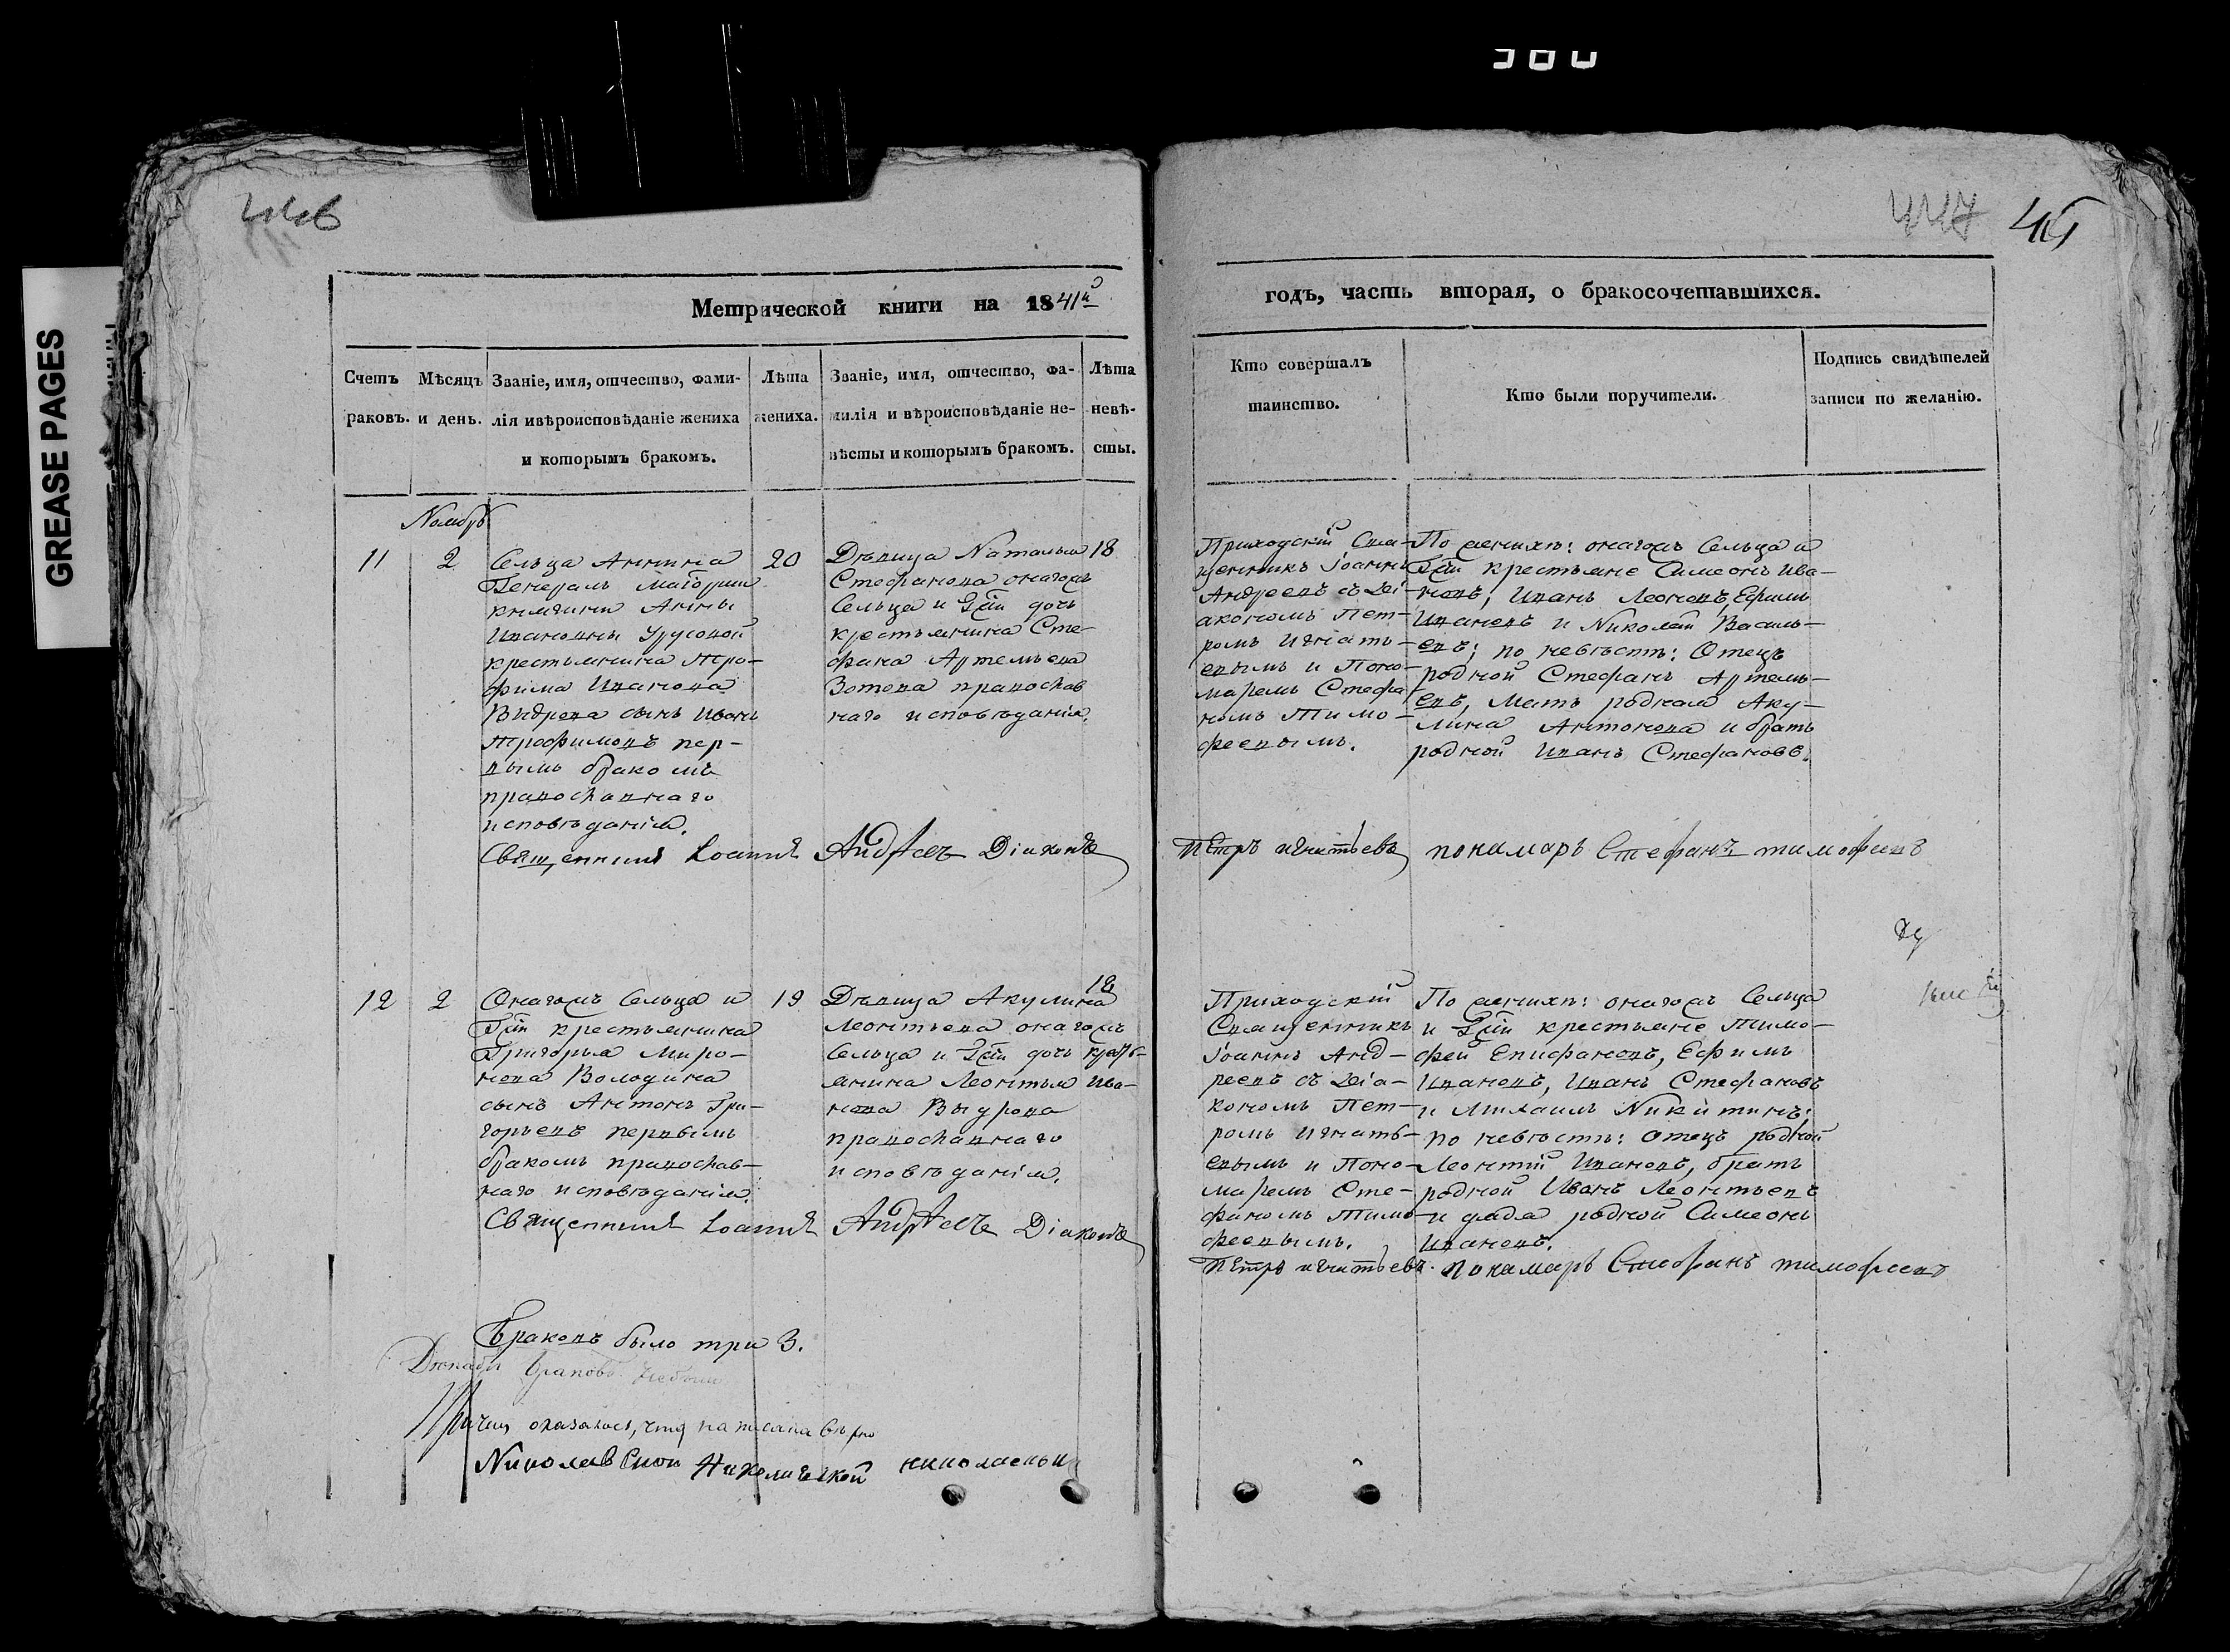 380
GREASE PAGES
446
447
Метрической книги на 1841й
годъ, часть вторая, о бракосочетавшихся.
Счетъ
раковъ.
Мѣсяцъ
и день.
Званіе, имя, отчество, фами-
лія и вѣроисповѣданіе жениха
и которымъ бракомъ.
Лѣта
жениха.
Званіе, имя, отчество, фа-
милія и вѣроисповѣданіе не-
вѣсты и которымъ бракомъ.
Лѣта
невѣ-
сты.
Кто совершалъ
таинство.
Кто были поручители.
Подпись свидѣтелей
записи по желанію.
Ноябрь
11
2
Сельца Аннина
Генералъ Маіорши
княгини Анны
Ивановны Урусовой
крестьянина Тро-
фима Иванова
Выдрова сынъ Иванъ
Трофимовъ пер-
вымъ бракомъ
православнаго
исповѣданія.
20
Дѣвица Наталья
Стефанова онагожъ
Сельца и Гжи дочь
крестьянина Сте-
фана Артемьева
Зотова православ
наго исповѣданія.
18
Приходскій Свя-
щенникъ Іоаннъ
Андреевъ съ Ді-
акономъ Пет-
ромъ Игнать-
евымъ и Поно-
маремъ Стефа-
номъ Тимо-
феевымъ.
По женихѣ: онагожъ Сельца и
Гжи крестьяне Симеонъ Ива-
новъ, Иванъ Леоновъ, Ефимъ
Ивановъ и Николай Василь-
евъ; по невѣстѣ: Отецъ
родной Стефанъ Артемь-
евъ, Мать родная Аку-
лина Антонова и братъ
родной Иванъ Стефановъ.
Священникъ Іоаннъ Андреевъ Діаконъ
Петръ игнатьевъ понамарь Стефанъ тимофеевъ
12
2
Онагожъ Сельца и
Гжи крестьянина
Григорья Миро-
нова Володина
сынъ Антонъ Гри-
горьевъ первымъ
бракомъ православ-
наго исповѣданія.
19
Дѣвица Акулина
Леонтьева онагожъ
Сельца и Гжи дочь кресть-
янина Леонтья Ива-
нова Выдрова
православнаго
исповѣданія.
18
Приходскій
Священникъ
Іоаннъ Анд-
реевъ съ Діа-
кономъ Пет-
ромъ Игнать-
евымъ и Поно-
маремъ Сте-
фаномъ Тимо-
феевымъ.
По женихѣ: онагожъ Сельца
и Гжи крестьяне Тимо-
фей Епифановъ, Ефимъ
Ивановъ, Иванъ Стефановъ
и Михаилъ Никитинъ:
по невѣстѣ: отецъ родной
Леонтій Ивановъ, братъ
родной Иванъ Леонтьевъ
и дядя родной Симеонъ
Ивановъ.
Священникъ Іоаннъ Андреевъ Діаконъ
Петръ игнатьевъ. понамарь Стефанъ тимофеевъ
Браковъ было три 3.
Декабрѣ браковъ небыло
оказалось, что написана вѣрно